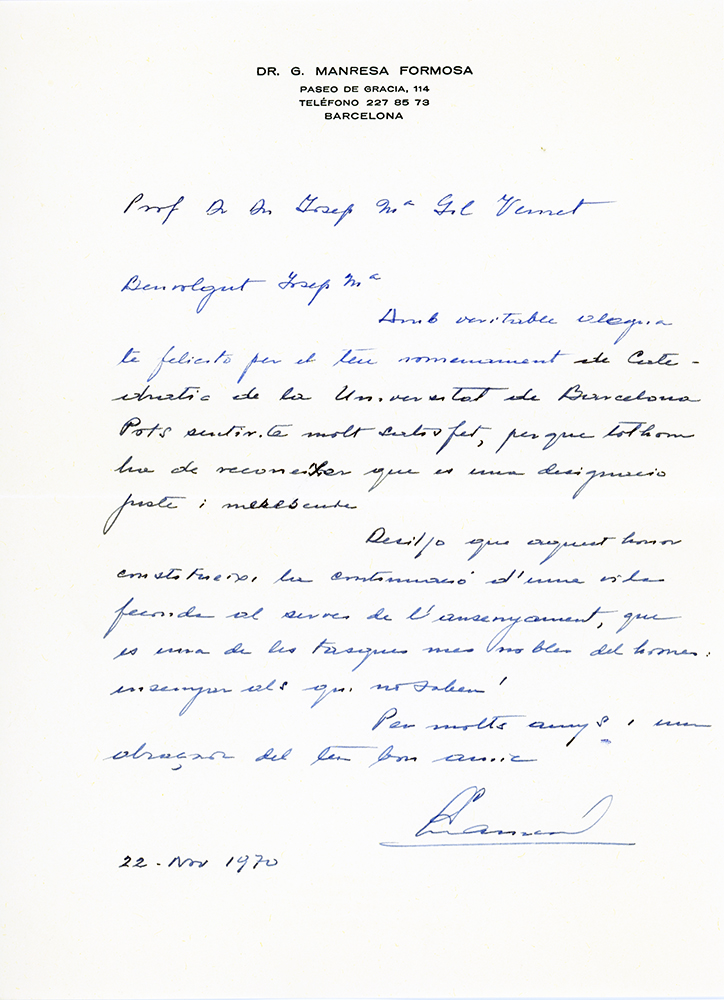 DR. G. MANRESA FORMOSA
PASEO DE GRACIA, 114
TELÉFONO 227 85 73
BARCELONA
Prof Dr Dn Josep Mª Gil Vernet
Benvolgut Josep Mª
Amb veritable alegria
te felicito per el teu nomenament de Cate-
dratic de la Universitat de Barcelona
Pots sentir-te molt satisfet, perque tothom
ha de reconeixer que es una designacio
juste i
Desitjo que aquest honor
constitueixi la continuació d'una vida
feconda al servei de l'ansenyament, que
es una de les tasques mes nobles del homes:
ensenyar als qui no saben!
Per molts anys i una
abraçada del teu bon amic
22 - Nov 1970